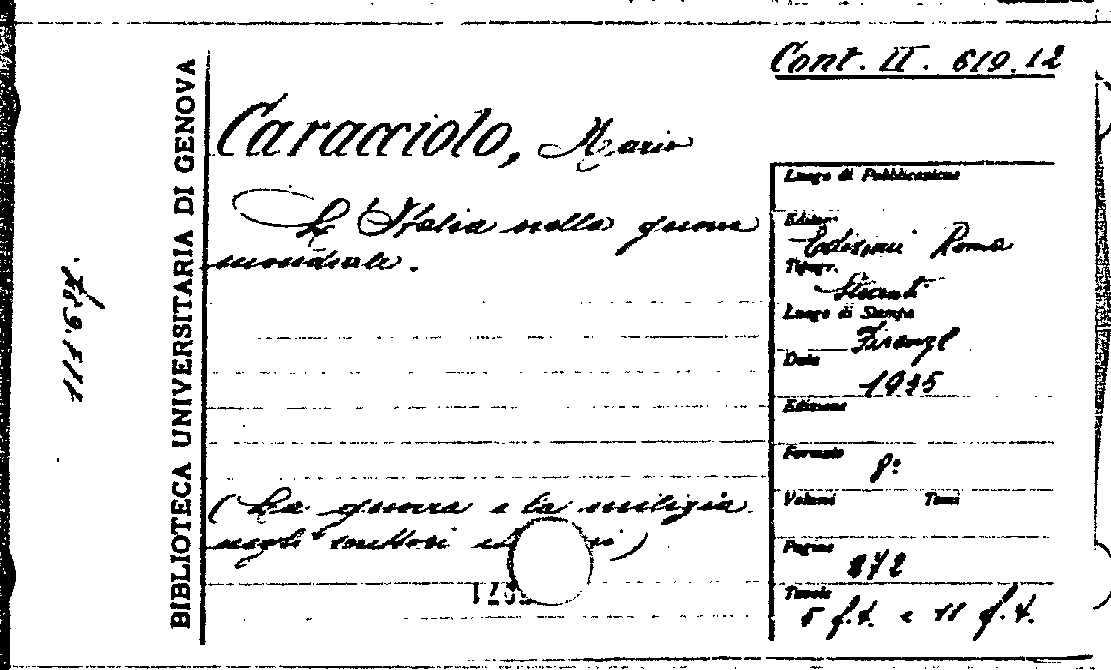 Cont. II. 619.12
Caracciolo, Mario
L'Italia nella guerra
mondiale.
(La guerra e la milizia
negli scrittori
BIBLIOTECA UNIVERSITARIA DI GENOVA
Luogo di Pubblicazione
Editore
Edizioni Roma
Tipogr.
Luogo di Stampa
Firenze
Data
1935
Edizione
Formato
8:
Volumi Tomi
Pagine
272
Tavole
5 f.t. e 11 f.t.